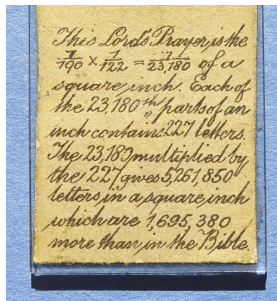 This Lord's Prayer, is the
1/190 × 1/122 = 1/23,180 of a
square inch. Each of
the 23,180th parts of an
inch contains 227 letters.
The 23,180 multiplied by
the 227 gives 5,261,850
letters, in a square inch
which are 1,695,380
more than, in the Bible.